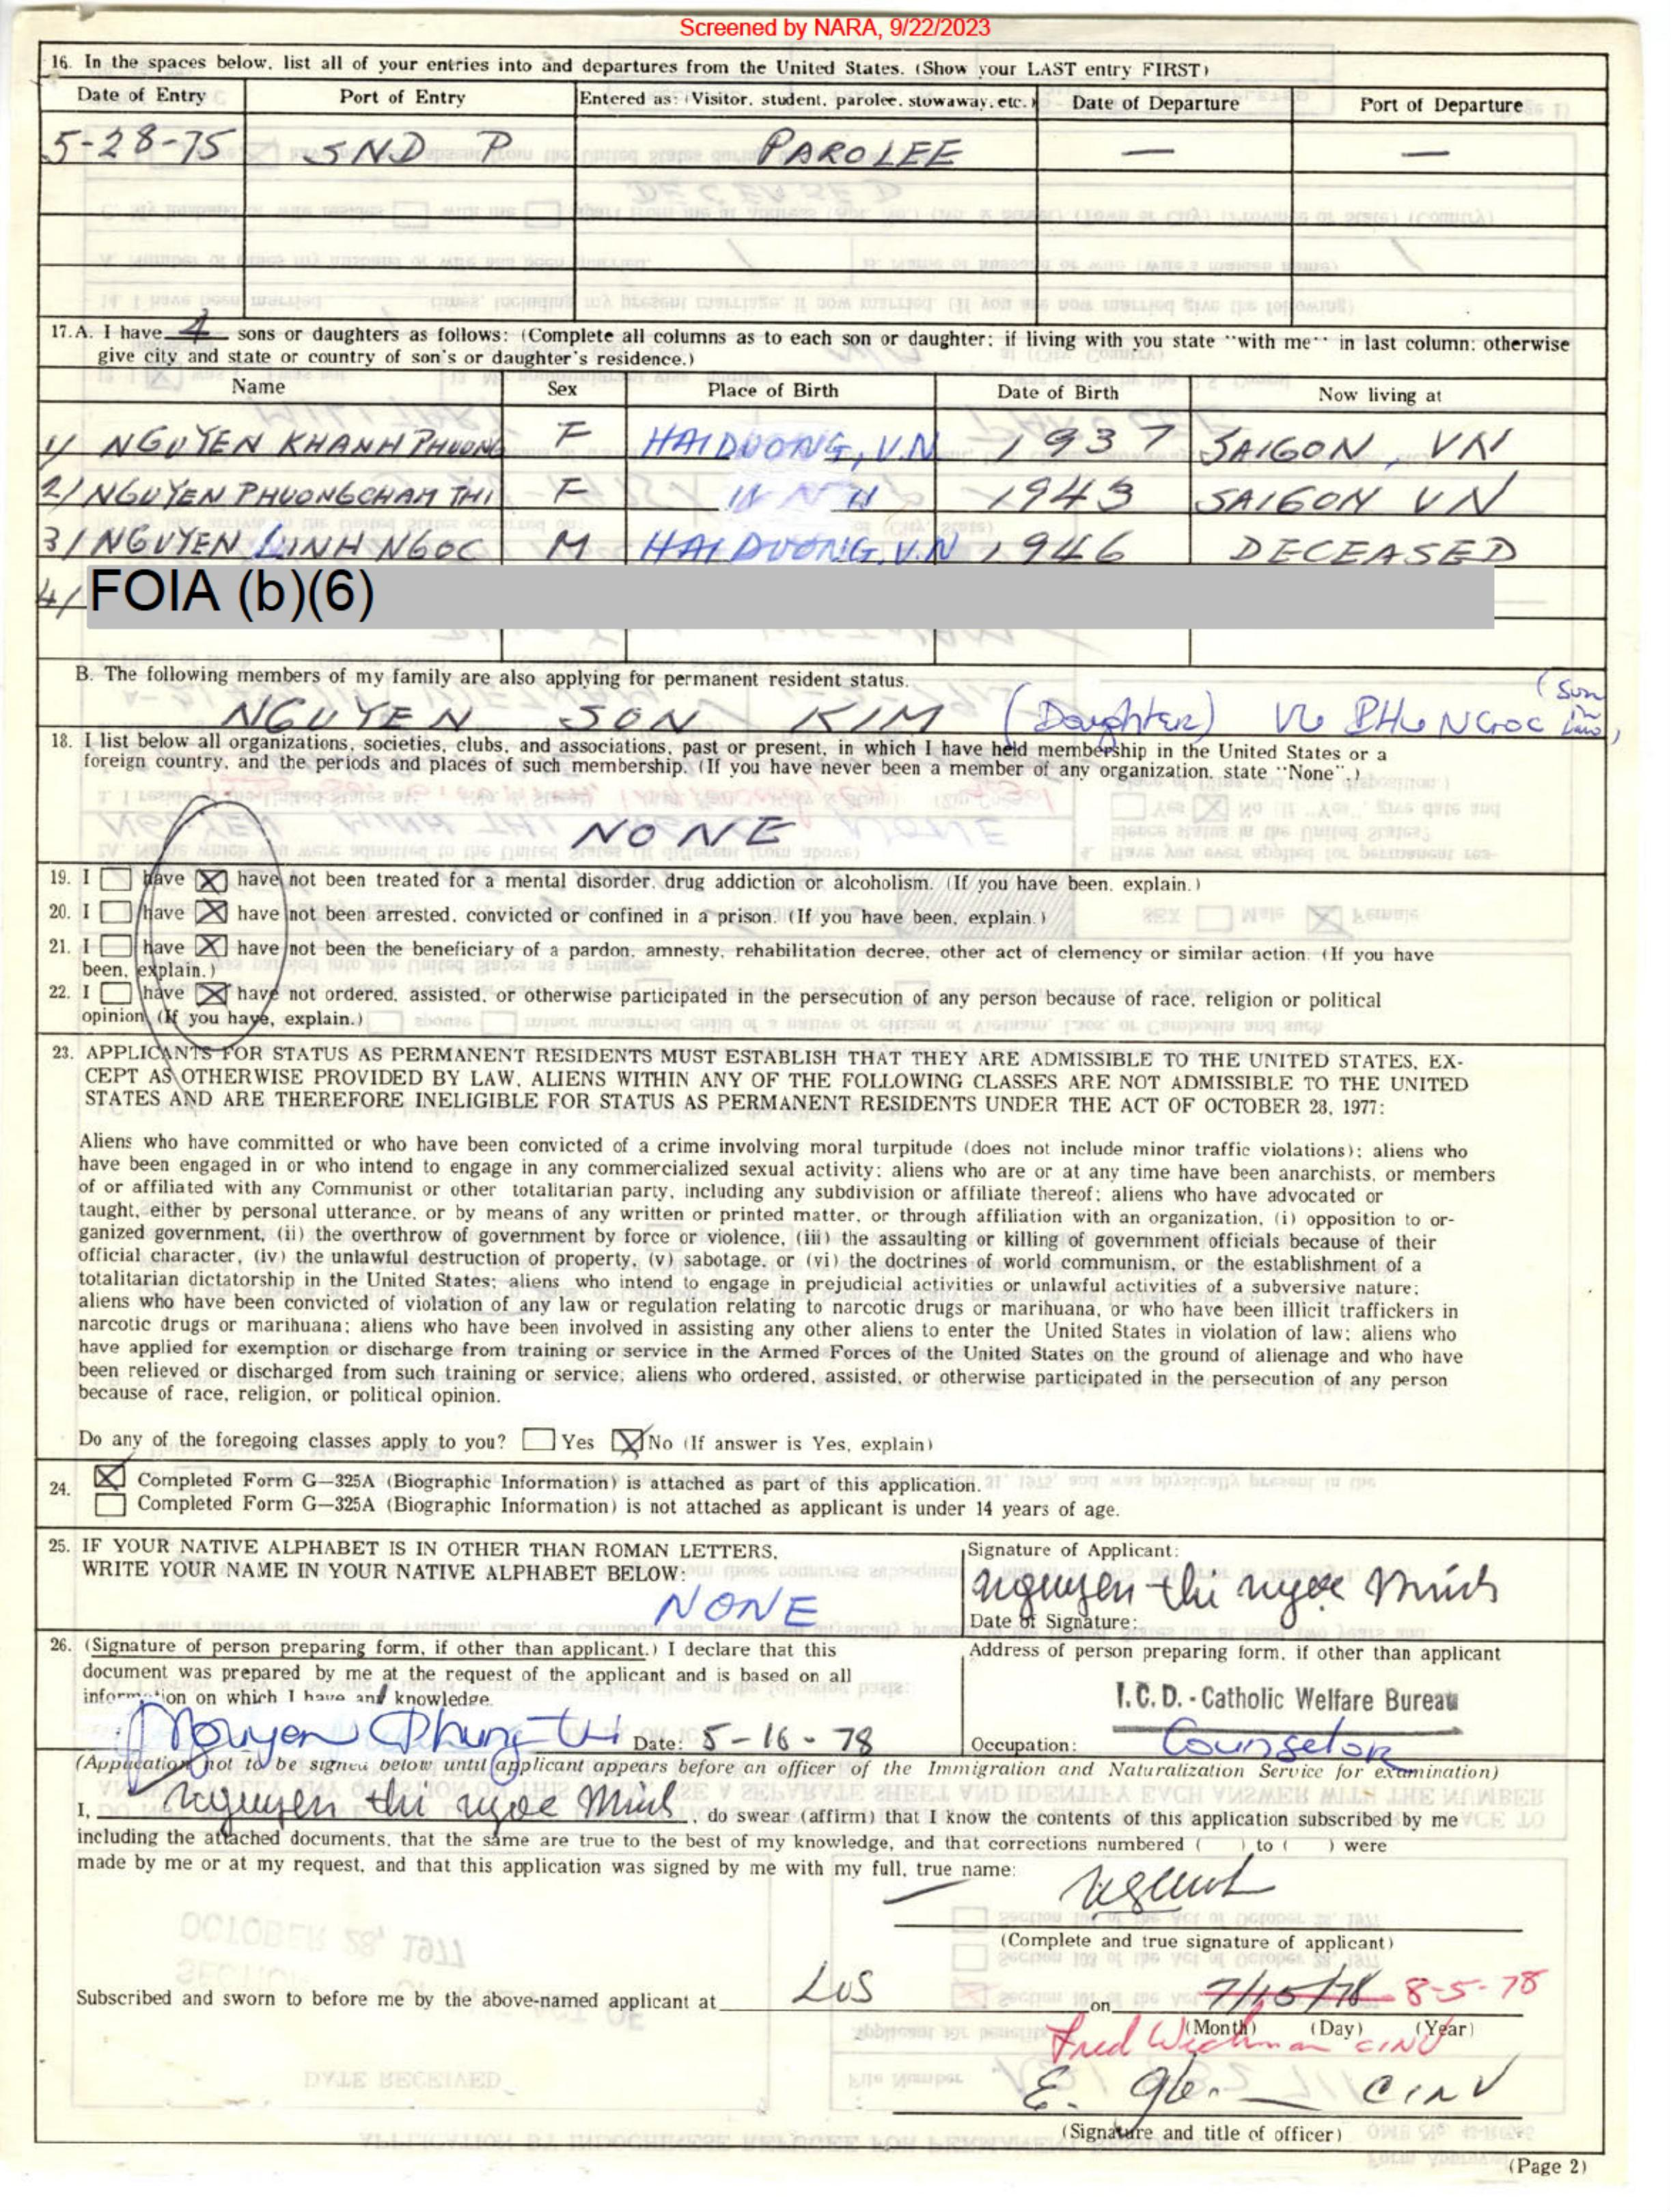 Screened by NARA, 9/22/2023
16. In the spaces below, list all of your entries into and departures from the United States. (Show your LAST entry FIRST)
Date of Entry Port of Entry Entered as: (Visitor, student, parolee, stowaway, etc.) Date of Departure Port of Departure
5-28-75 SND P PAROLEE — —
17. A. I have 4 sons or daughters as follows: (Complete all columns as to each son or daughter; if living with you state "with me" in last column; otherwise
give city and state or country of son's or daughter's residence.)
Name Sex Place of Birth Date of Birth Now living at
1/ NGUYEN KHANH PHUONG F HAIDUONG, V.N 1937 SAIGON, VN
2/ NGUYEN PHUONGCHAM THI F 1943 SAIGON VN
3/ NGUYEN LINH NGOC M HAI DUONG, V.N 1946 DECEASED
4/ FOIA (b)(6)
B. The following members of my family are also applying for permanent resident status.
NGUYEN SON KIM (Daughter) VU PHU NGOC (Son in law)
18. I list below all organizations, societies, clubs, and associations, past or present, in which I have held membership in the United States or a
foreign country, and the periods and places of such membership. (If you have never been a member of any organization, state "None".)
NONE
19. I have X have not been treated for a mental disorder, drug addiction or alcoholism. (If you have been, explain.)
20. I have X have not been arrested, convicted or confined in a prison. (If you have been, explain.)
21. I have X have not been the beneficiary of a pardon, amnesty, rehabilitation decree, other act of clemency or similar action. (If you have
been, explain.)
22. I have X have not ordered, assisted, or otherwise participated in the persecution of any person because of race, religion or political
opinion (If you have, explain.)
23. APPLICANTS FOR STATUS AS PERMANENT RESIDENTS MUST ESTABLISH THAT THEY ARE ADMISSIBLE TO THE UNITED STATES, EX-
CEPT AS OTHERWISE PROVIDED BY LAW, ALIENS WITHIN ANY OF THE FOLLOWING CLASSES ARE NOT ADMISSIBLE TO THE UNITED
STATES AND ARE THEREFORE INELIGIBLE FOR STATUS AS PERMANENT RESIDENTS UNDER THE ACT OF OCTOBER 28, 1977:
Aliens who have committed or who have been convicted of a crime involving moral turpitude (does not include minor traffic violations); aliens who
have been engaged in or who intend to engage in any commercialized sexual activity; aliens who are or at any time have been anarchists, or members
of or affiliated with any Communist or other totalitarian party, including any subdivision or affiliate thereof; aliens who have advocated or
taught, either by personal utterance, or by means of any written or printed matter, or through affiliation with an organization, (i) opposition to or-
ganized government, (ii) the overthrow of government by force or violence, (iii) the assaulting or killing of government officials because of their
official character, (iv) the unlawful destruction of property, (v) sabotage, or (vi) the doctrines of world communism, or the establishment of a
totalitarian dictatorship in the United States; aliens who intend to engage in prejudicial activities or unlawful activities of a subversive nature;
aliens who have been convicted of violation of any law or regulation relating to narcotic drugs or marihuana, or who have been illicit traffickers in
narcotic drugs or marihuana; aliens who have been involved in assisting any other aliens to enter the United States in violation of law; aliens who
have applied for exemption or discharge from training or service in the Armed Forces of the United States on the ground of alienage and who have
been relieved or discharged from such training or service; aliens who ordered, assisted, or otherwise participated in the persecution of any person
because of race, religion, or political opinion.
Do any of the foregoing classes apply to you? Yes X No (If answer is Yes, explain)
24. X Completed Form G—325A (Biographic Information) is attached as part of this application.
Completed Form G—325A (Biographic Information) is not attached as applicant is under 14 years of age.
25. IF YOUR NATIVE ALPHABET IS IN OTHER THAN ROMAN LETTERS,
WRITE YOUR NAME IN YOUR NATIVE ALPHABET BELOW:
NONE
Signature of Applicant:
nguyen thi ngoc Minh
Date of Signature:
26. (Signature of person preparing form, if other than applicant.) I declare that this
document was prepared by me at the request of the applicant and is based on all
information on which I have any knowledge.
Nguyen Phung Thi Date: 5-16-78
Address of person preparing form, if other than applicant
I.C.D. - Catholic Welfare Bureau
Occupation: Counselor
(Application not to be signed below until applicant appears before an officer of the Immigration and Naturalization Service for examination)
I, nguyen thi ngoc Minh, do swear (affirm) that I know the contents of this application subscribed by me
including the attached documents, that the same are true to the best of my knowledge, and that corrections numbered ( ) to ( ) were
made by me or at my request, and that this application was signed by me with my full, true name:
(Complete and true signature of applicant)
Subscribed and sworn to before me by the above-named applicant at LOS on 7/15/78 8-5-78
(Month) (Day) (Year)
Fred Wichman CINV
E. CINV
(Signature and title of officer)
(Page 2)